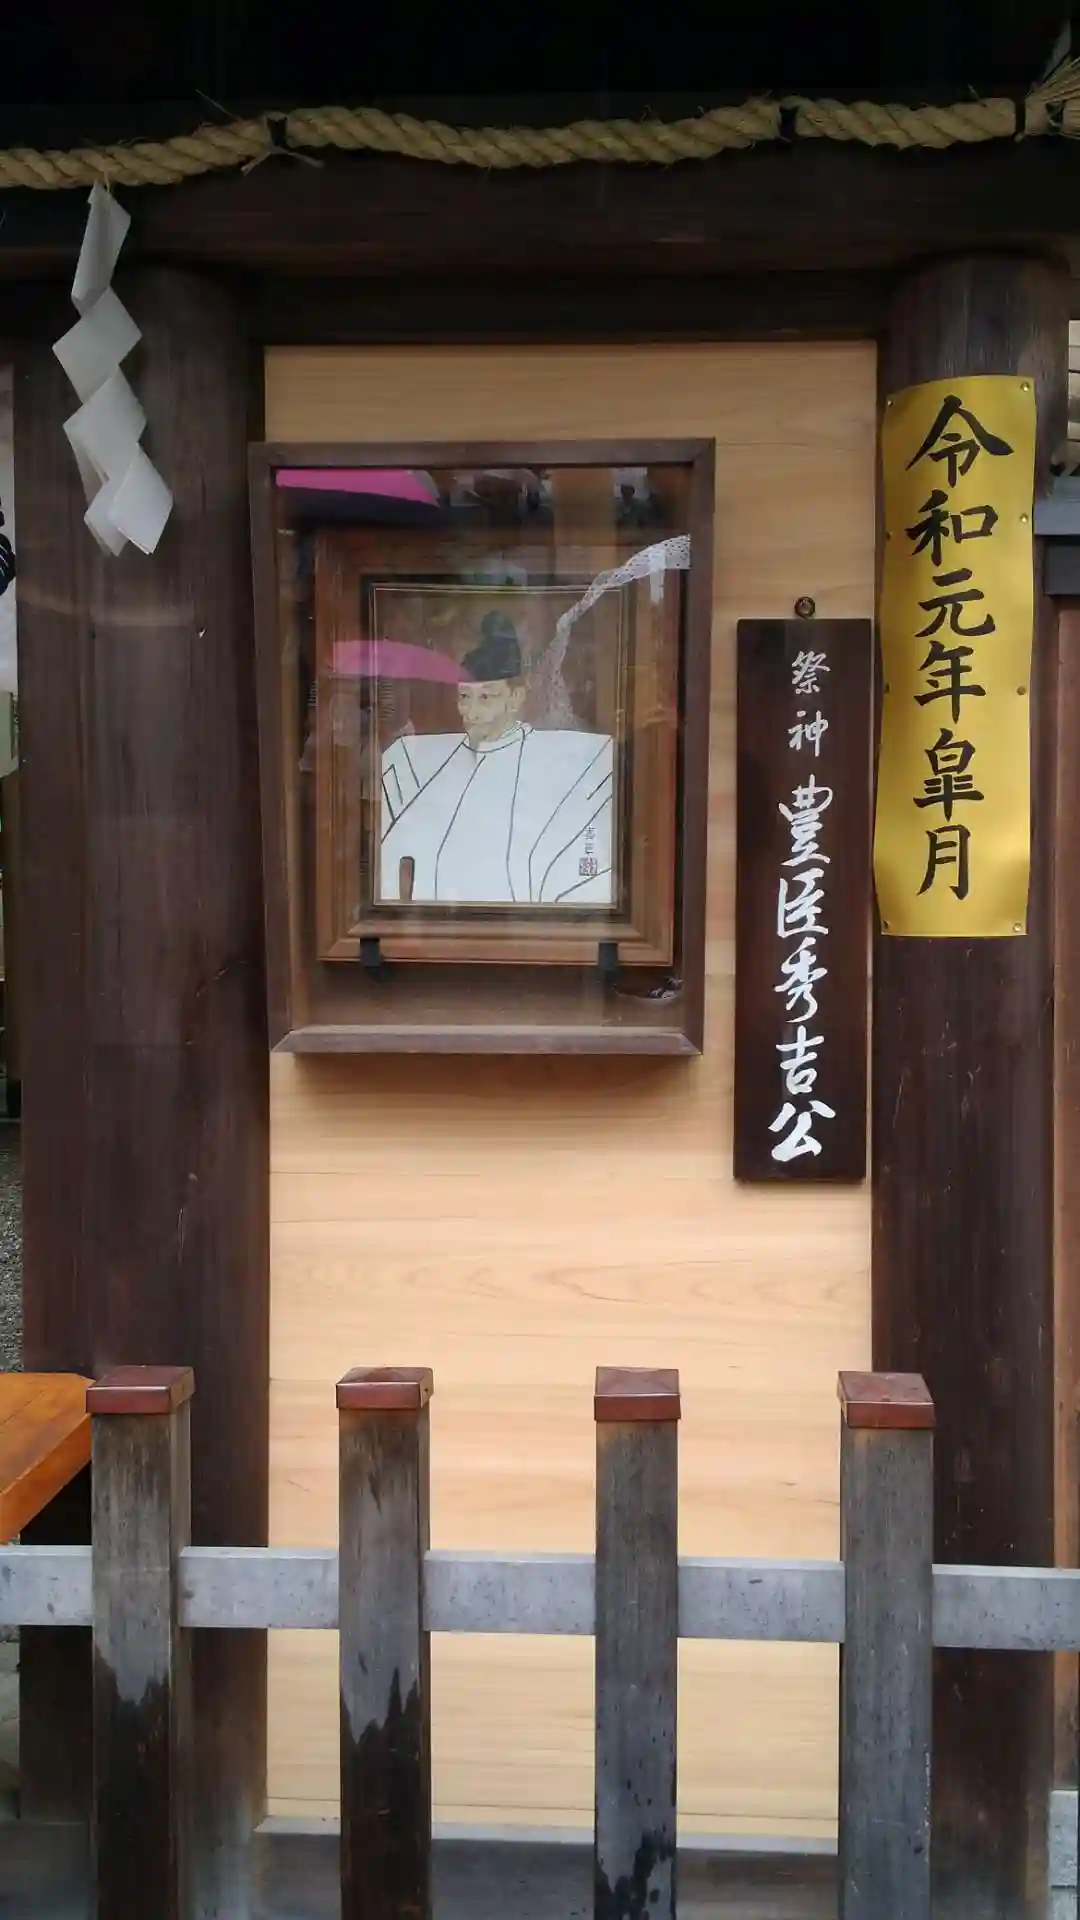 令和元年皐月
祭神 豊臣秀吉公